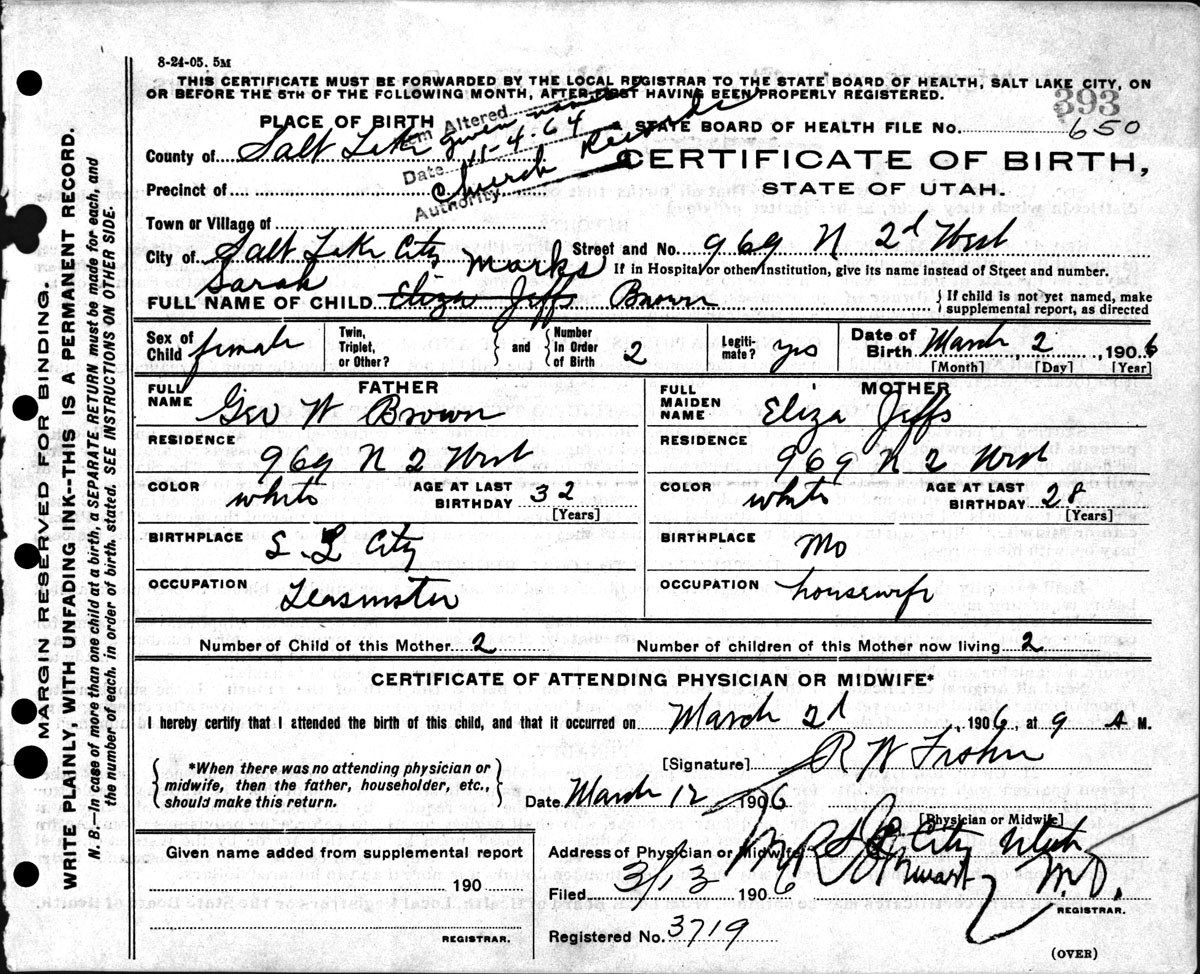 8-24-05. 5M
THIS CERTIFICATE MUST BE FORWARDED BY THE LOCAL REGISTRAR TO THE STATE BOARD OF HEALTH, SALT LAKE CITY, ON
OR BEFORE THE 5TH OF THE FOLLOWING MONTH, AFTER FIRST HAVING BEEN PROPERLY REGISTERED.
393
PLACE OF BIRTH
STATE BOARD OF HEALTH FILE No. 650
Item Altered given name
Date 11-4-64
Authority Church Records
County of Salt Lake
CERTIFICATE OF BIRTH,
Precinct of
STATE OF UTAH.
Town or Village of
City of Salt Lake City Street and No. 969 N 2d West
If in Hospital or other Institution, give its name instead of Street and number.
Sarah Marks
FULL NAME OF CHILD Eliza Jeffs Brown
If child is not yet named, make
supplemental report, as directed
Sex of Child female
Twin, Triplet, or Other? and Number In Order of Birth 2
Legitimate? yes
Date of Birth March 2 1906
[Month] [Day] [Year]
FATHER
MOTHER
FULL NAME Geo W Brown
FULL MAIDEN NAME Eliza Jeffs
RESIDENCE 969 N 2 West
RESIDENCE 969 N 2 West
COLOR white AGE AT LAST BIRTHDAY 32 [Years]
COLOR white AGE AT LAST BIRTHDAY 28 [Years]
BIRTHPLACE S. L City
BIRTHPLACE Mo
OCCUPATION Teamster
OCCUPATION housewife
Number of Child of this Mother 2
Number of children of this Mother now living 2
CERTIFICATE OF ATTENDING PHYSICIAN OR MIDWIFE*
I hereby certify that I attended the birth of this child, and that it occurred on March 2d, 1906, at 9 A M.
*When there was no attending physician or
midwife, then the father, householder, etc.,
should make this return.
[Signature] R W
Date March 12 1906
[Physician or Midwife]
Address of Physician or Midwife S L City Utah
Given name added from supplemental report
190
REGISTRAR.
Filed 3/13 1906 Stewart M.D.
REGISTRAR.
Registered No. 3719
(OVER)
MARGIN RESERVED FOR BINDING.
WRITE PLAINLY, WITH UNFADING INK--THIS IS A PERMANENT RECORD.
N. B.—In case of more than one child at a birth, a SEPARATE RETURN must be made for each, and
the number of each, in order of birth, stated. SEE INSTRUCTIONS ON OTHER SIDE.